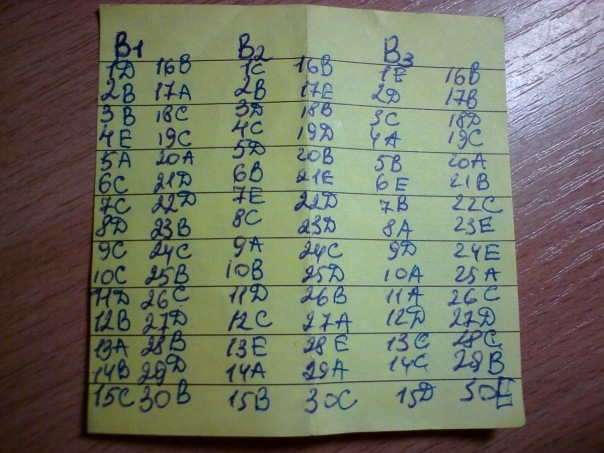 B1 B2 B3
1D 16B 1C 16B 1E 16B
2B 17A 2B 17E 2D 17B
3B 18C 3D 18B 3C 18D
4E 19C 4C 19D 4A 19C
5A 20A 5D 20B 5B 20A
6C 21D 6B 21E 6E 21B
7C 22D 7E 22D 7B 22C
8D 23B 8C 23D 8A 23E
9C 24C 9A 24C 9D 24E
10C 25B 10B 25D 10A 25A
11D 26C 11D 26B 11A 26C
12B 27D 12C 27A 12D 27D
13A 28B 13E 28E 13C 28C
14B 29D 14A 29A 14C 29B
15C 30B 15B 30C 15D 30E